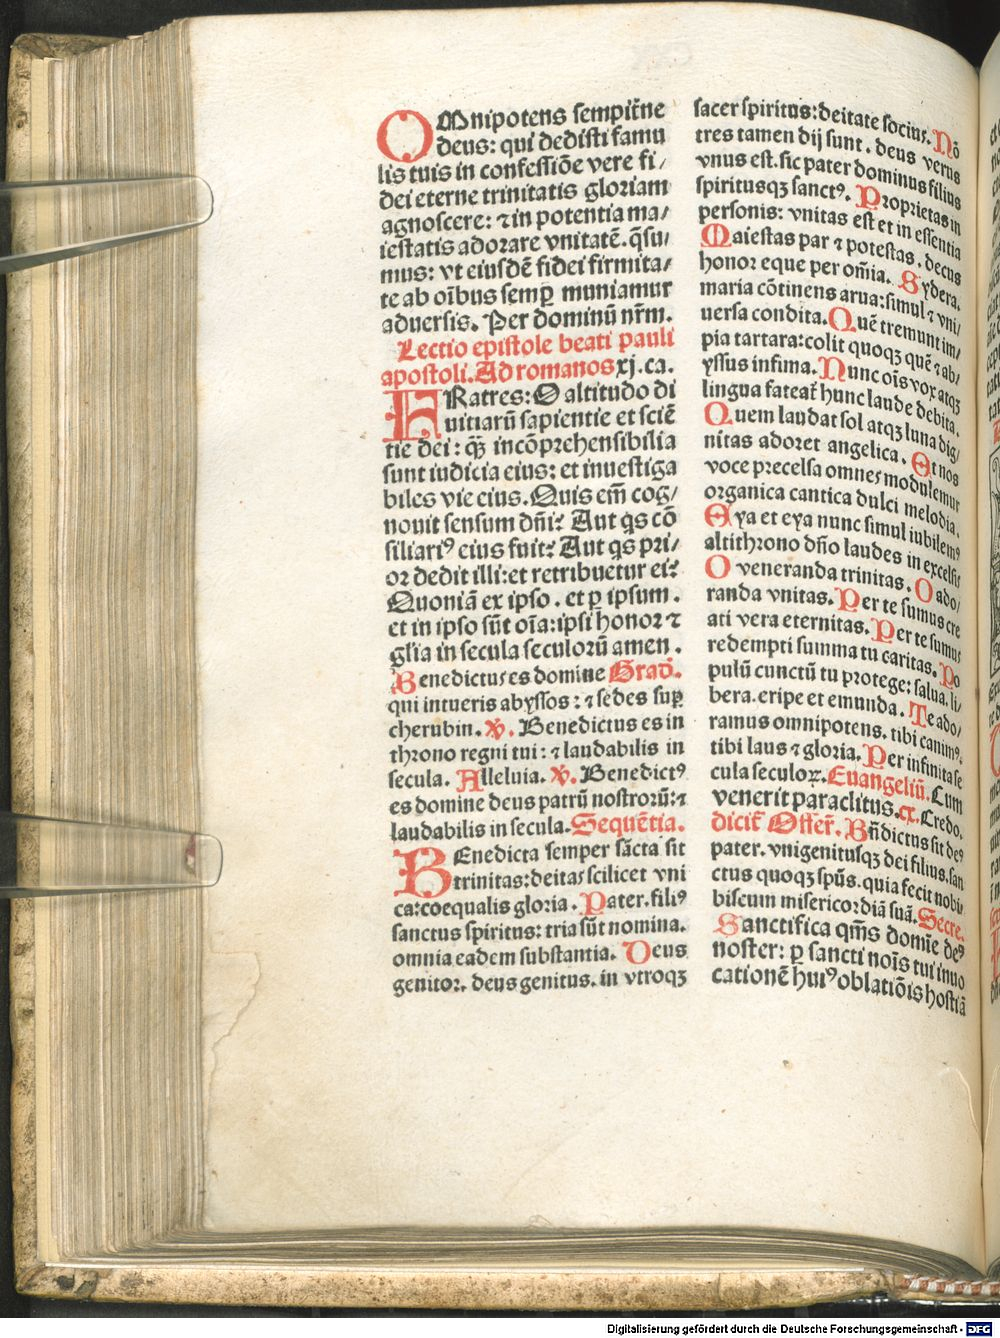 OMnipotens sempit̄ne
deus: qui dedisti famu
lis tuis in confessiōe vere fi/
dei eterne trinitatis gloriam
agnoscere: ⁊ in potentia ma/
iestatis adorare vnitatē. q̄su/
mus: vt eiusdē fidei firmita/
te ab oībus semꝑ muniamur
aduersis. Per dominū nr̄m.
Lectio epistole beati pauli
apostoli. Ad romanos xj. ca.
FRatres: O altitudo di
uitiarū sapientie et sciē
tie dei: q̄ꝫ incōprehensibilia
sunt iudicia eius: et inuestiga
biles vie eius. Quis em̄ cog/
nouit sensum dn̄i? Aut q̄s cō
siliariꝰ eius fuit? Aut q̄s pri/
or dedit illi: et retribuetur ei?
Quoniā ex ipso. et ꝑ ipsum.
et in ipso sūt oīa: ipsi honor ⁊
glīa in secula seculorū amen.
Benedictus es domine Grad̄.
qui intueris abyssos: ⁊ sedes suꝑ
cherubin. ℣. Benedictus es in
throno regni tui: ⁊ laudabilis in
secula. Alleluia. ℣. Benedictꝰ
es domine deus patrū nostrorū: ⁊
laudabilis in secula. Sequētia.
BEnedicta semper sācta sit
trinitas: deitas scilicet vni
ca: coequalis gloria. Pater. filiꝰ
sanctus spiritus: tria sūt nomina.
omnia eadem substantia. Deus
genitor. deus genitus. in vtroqꝫ
sacer spiritus: deitate socius. Nō
tres tamen dij sunt. deus verus
vnus est. sic pater dominus filius
spiritusqꝫ sanctꝰ. Proprietas in
personis: vnitas est et in essentia
Maiestas par ⁊ potestas. decus
honor eque per om̄ia. Sydera.
maria cōtinens arua: simul ⁊ vni/
uersa condita. Quē tremunt im/
pia tartara: colit quoqꝫ quē ⁊ ab/
yssus infima. Nunc oīs vox atqꝫ
lingua fateat̄ hunc laude debita.
Quem laudat sol atqꝫ luna dig/
nitas adoret angelica. Et nos
voce precelsa omnes modulemur
organica cantica dulci melodia.
Eya et eya nunc simul iubilemꝰ
altithrono dn̄o laudes in excelsis
O veneranda trinitas. O ado/
randa vnitas. Per te sumus cre
ati vera eternitas. Per te sumus
redempti summa tu caritas. Po
pulū cunctū tu protege: salua. li/
bera. eripe et emunda. Te ado/
ramus omnipotens. tibi canimꝰ.
tibi laus ⁊ gloria. Per infinita se
cula seculoꝝ. Euangeliū. Cum
venerit paraclitus. cx. Credo.
dicit̄ Offer̄. Bn̄dictus sit deꝰ
pater. vnigenitusqꝫ dei filius. san
ctus quoqꝫ spūs. quia fecit nobi
biscum misericordiā suā. Secre.
Sanctifica qm̄s domīe deꝰ
noster: ꝑ sancti noīs tui inuo
cationē huiꝰ oblatiōis hostiā
Digitalisierung gefördert durch die Deutsche Forschungsgemeinschaft - DFG